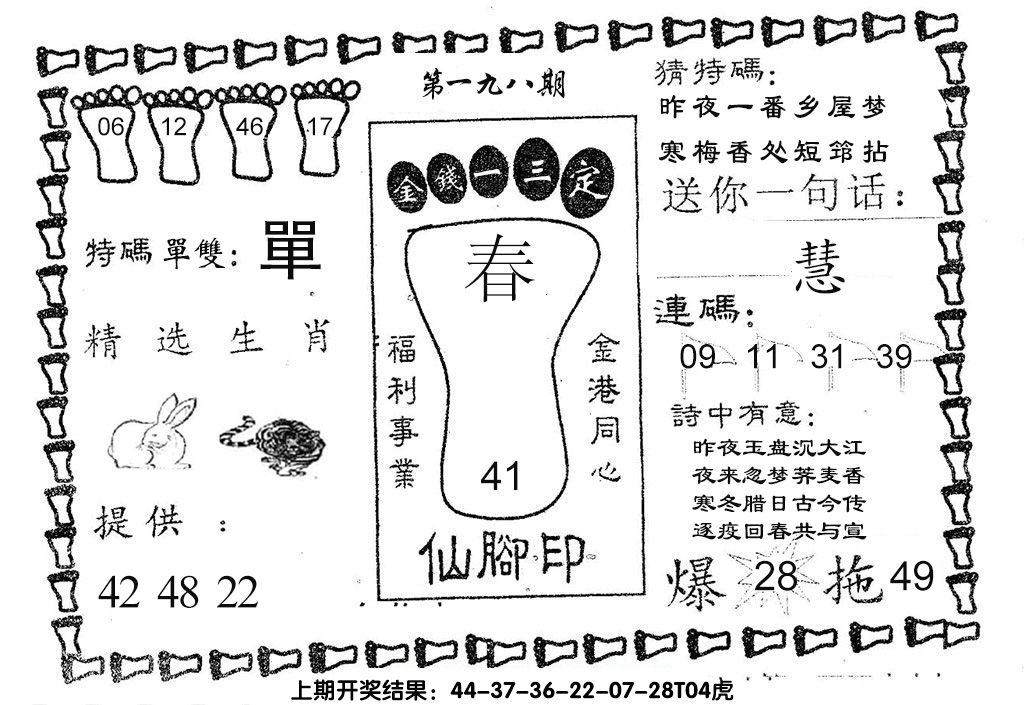 第一九八期
06 12 46 17
特碼單雙：單
精选生肖
提供：
42 48 22
金錢一三定
春
福利事業
金港同心
41
仙腳印
猜特碼：
昨夜一番乡屋梦
寒梅香处短筇拈
送你一句话：
慧
連碼：
09 11 31 39
詩中有意：
昨夜玉盘沉大江
夜来忽梦荞麦香
寒冬腊日古今传
逐疫回春共与宣
爆 28 拖 49
上期开奖结果：44-37-36-22-07-28T04虎